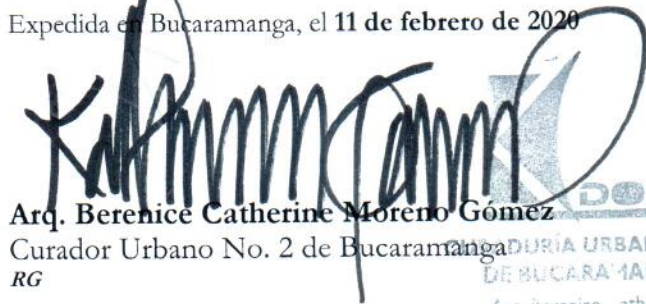 Expedida en Bucaramanga, el 11 de febrero de 2020
DO
Arq. Berenice Catherine Moreno Gómez
Curador Urbano No. 2 de Bucaramanga
DURÍA URBA
RG
DE BUCARAMA